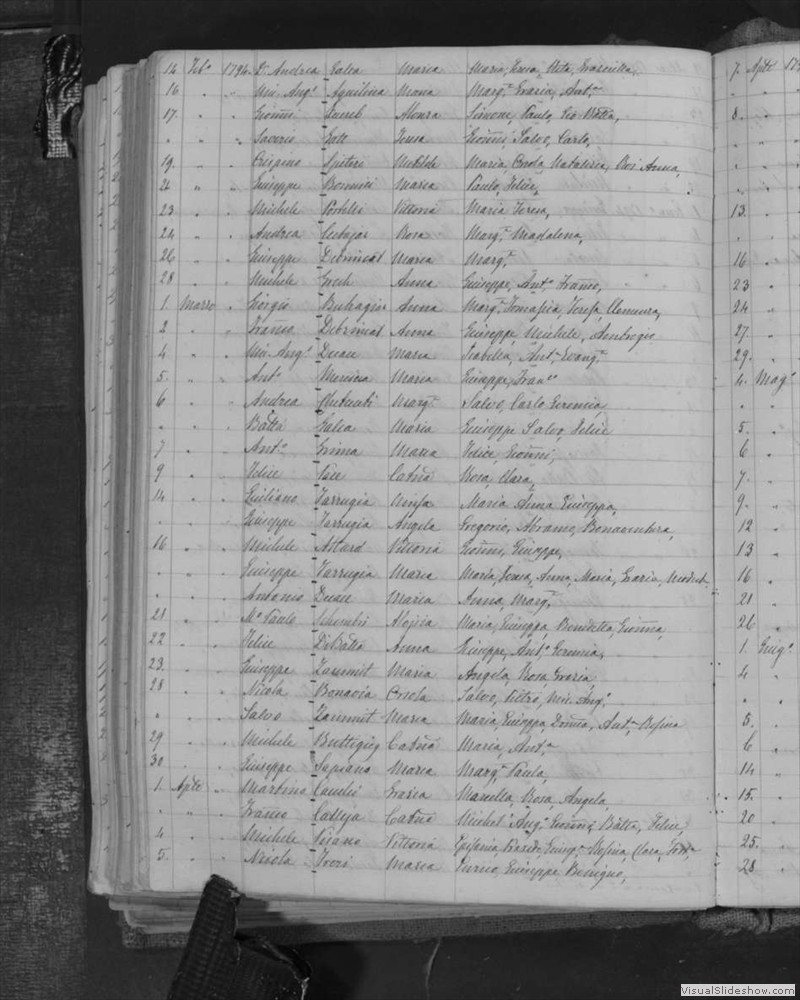 14 Feb.º 1794. Dr. Andrea Galea Maria Maria, Teresa, Rita, Graziulla,
16 " " Mic. Ang.º Aquilina Maria Marg.ª Grazia, Ant.ª
17. " " Gioñi Simone, Paulo, Gio Batta,
" " " Saverio Gatt Teresa Gioñi, Salvo, Carlo,
19. " " Crispino Spiteri Matilde Maria, Orsola, Natalizia, Anna,
" " Giuseppe Bonnici Maria Paulo, Felice,
23 " " Michele Portelli Vittoria Maria Teresa,
24 " " Andrea Rosa Marg.ª Magdalena,
26 " " Giuseppe Debrincat Maria Marg.ª
28 " " Michele Grech Anna Giuseppe, Ant.º Franco,
1. Marzo " Giorgio Buhagiar Anna Marg.ª Tomasica, Teresa,
2 " " Franco Debrincat Anna Giuseppe, Michele, Ambrogio
4 " " Mic. Ang.º Maria Isabella, Ant.ª Evang.ª
5. " " Ant.º Maria Giuseppe, Fran.co
6 " " Andrea Marg.ª Salvo, Carlo Geremia,
" " " Batta Galea Maria Giuseppe Salvo, Felice
7 " " Ant.º Grima Maria Felice, Gioñi,
9 " " Felice Pace Catña Rosa, Clara,
14 " " Giuliano Farrugia Maria Anna Giuseppa,
" " " Giuseppe Farrugia Angela Gregorio, Abramo, Bonaventura,
16 " " Michele Attard Vittoria Gioñi, Giuseppe,
" " " Giuseppe Farrugia Maria Maria, Teresa, Anna, Maria, Grazia,
" " " Antonio Maria Anna, Marg.ª
21 " " M.º Paulo Schembri Aloisia Maria, Giuseppa, Benedetta, Gioñna,
22 " " Felice DiBatta Anna Giuseppe, Ant.º Geremia,
23. " " Giuseppe Zammit Maria Angela, Rosa Grazia
28 " " Nicola Bonavia Orsola Salvo, Pietro, Mic. Ang.º
" " " Salvo Zammit Maria Maria, Giuseppa, Ant.ª
29 " " Michele Buttigieg Catña Maria, Ant.ª
30 " " Giuseppe Sapiano Maria Marg.ª Paula,
1. Aple " Martino Camilleri Grazia Marcella, Rosa, Angela,
" " " Franco Calleja Catña Michel' Ang.º Gioñi, Batta, Felice,
4 " " Michele Vittoria Epifania, Clara,
5. " " Nicola Maria Enrico, Giuseppe Benigno,
7. Aple 179
" "
8. "
" "
" "
" "
13. "
" "
16 "
23 "
24 "
27 "
29 "
4. Mag.º
" "
5. "
6 "
7. "
9. "
12 "
13 "
16 "
21 "
26 "
1. Giug.º
4 "
" "
5. "
6 "
14 "
15. "
20 "
25. "
28 "
VisualSlideshow.com